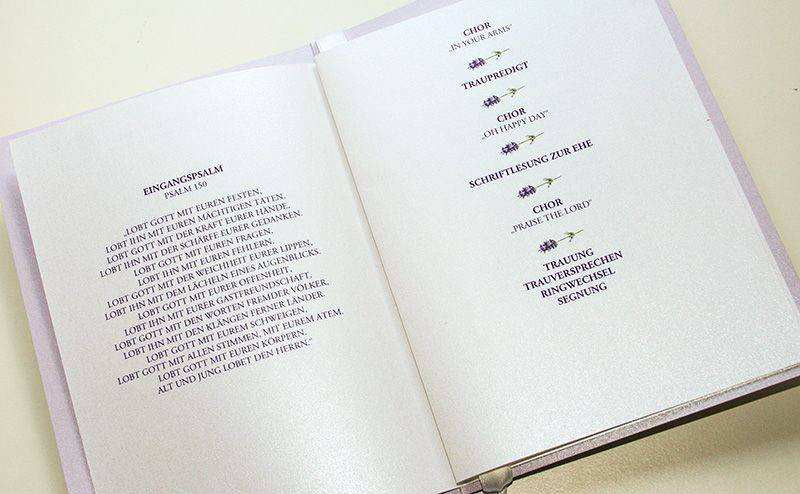 EINGANGSPSALM
PSALM 150
„LOBT GOTT MIT EUREN FESTEN,
LOBT IHN MIT EUREN MÄCHTIGEN TATEN.
LOBT GOTT MIT DER KRAFT EURER HÄNDE,
LOBT IHN MIT DER SCHÄRFE EURER GEDANKEN.
LOBT GOTT MIT EUREN FRAGEN,
LOBT IHN MIT EUREN FEHLERN.
LOBT GOTT MIT DER WEICHHEIT EURER LIPPEN,
LOBT IHN MIT DEM LÄCHELN EINES AUGENBLICKS.
LOBT GOTT MIT EURER OFFENHEIT,
LOBT IHN MIT EURER GASTFREUNDSCHAFT,
LOBT GOTT MIT DEN WORTEN FREMDER VÖLKER,
LOBT IHN MIT DEN KLÄNGEN FERNER LÄNDER.
LOBT GOTT MIT EUREM SCHWEIGEN,
LOBT GOTT MIT ALLEN STIMMEN, MIT EUREM ATEM.
LOBT GOTT MIT EUREN KÖRPERN,
ALT UND JUNG LOBET DEN HERRN.“
CHOR
„IN YOUR ARMS“
TRAUPREDIGT
CHOR
„OH HAPPY DAY“
SCHRIFTLESUNG ZUR EHE
CHOR
„PRAISE THE LORD“
TRAUUNG
TRAUVERSPRECHEN
RINGWECHSEL
SEGNUNG